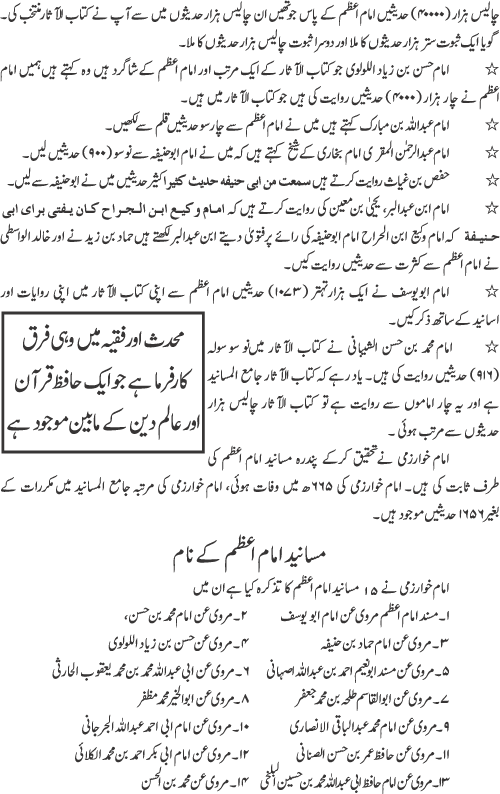 چالیس ہزار (۴۰۰۰۰) حدیثیں امام اعظم کے پاس جو تھیں ان چالیس ہزار حدیثوں میں سے آپ نے کتاب الآثار منتخب کی۔
گویا ایک ثبوت ستر ہزار حدیثوں کا ملا اور دوسرا ثبوت چالیس ہزار حدیثوں کا ملا۔
☆ امام حسن بن زیاد اللولوی جو کتاب الآثار کے ایک مرتب اور امام اعظم کے شاگرد ہیں وہ کہتے ہیں ہمیں امام
اعظم نے چار ہزار (۴۰۰۰) حدیثیں روایت کی ہیں جو کتاب الآثار میں ہیں۔
☆ امام عبداللہ بن مبارک کہتے ہیں میں نے امام اعظم سے چار سو حدیثیں قلم سے لکھیں۔
☆ امام عبدالرحمٰن المقری امام بخاری کے شیخ کہتے ہیں کہ میں نے امام ابوحنیفہ سے نو سو (۹۰۰) حدیثیں لیں۔
☆ حفص بن غیاث روایت کرتے ہیں سمعت من ابی حنیفه حدیث کثیر اکثیر حدیثیں میں نے ابوحنیفہ سے لیں۔
☆ امام ابن عبدالبر، یحییٰ بن معین کی روایت کرتے ہیں کہ امام وکیع ابن الجراح کان یفتی برای ابی
حنیفة کہ امام وکیع ابن الجراح امام ابوحنیفہ کی رائے پر فتویٰ دیتے ابن عبدالبر لکھتے ہیں حماد بن زید نے اور خالد الواسطی
نے امام اعظم سے کثرت سے حدیثیں روایت کیں۔
☆ امام ابو یوسف نے ایک ہزار تہتر (۱۰۷۳) حدیثیں امام اعظم سے اپنی کتاب الآثار میں اپنی روایات اور
اسانید کے ساتھ ذکر کیں۔
☆ امام محمد بن حسن الشیبانی نے کتاب الآثار میں نو سو سولہ
(۹۱۶) حدیثیں روایت کی ہیں۔ یاد رہے کہ کتاب الآثار جامع المسانید
ہے اور یہ چار اماموں سے روایت ہے تو کتاب الآثار چالیس ہزار
حدیثوں سے مرتب ہوئی۔
محدث اور فقیہ میں وہی فرق
کارفرما ہے جو ایک حافظ قرآن
اور عالم دین کے مابین موجود ہے
امام خوارزمی نے تحقیق کرکے پندرہ مسانید امام اعظم کی
طرف ثابت کی ہیں۔ امام خوارزمی کی ۶۶۵ھ میں وفات ہوئی، امام خوارزمی کی مرتبہ جامع المسانید میں مکررات کے
بغیر ۱۶۵۶ حدیثیں موجود ہیں۔
مسانید امام اعظم کے نام
امام خوارزمی نے ۱۵ مسانید امام اعظم کا تذکرہ کیا ہے ان میں
۱۔ مسند امام اعظم مروی عن امام ابو یوسف ۲۔ مروی عن امام محمد بن حسن،
۳۔ مروی عن امام حماد بن حنیفہ ۴۔ مروی عن حسن بن زیاد اللولوی
۵۔ مروی عن مسند ابونعیم احمد بن عبداللہ اصبہانی ۶۔ مروی عن ابی عبداللہ محمد بن محمد یعقوب الحارثی
۷۔ مروی عن ابوالقاسم طلحہ بن محمد جعفر ۸۔ مروی عن ابوالخیر محمد مظفر
۹۔ مروی عن امام محمد عبدالباقی الانصاری ۱۰۔ مروی عن امام ابی احمد عبداللہ الجرجانی
۱۱۔ مروی عن حافظ عمر بن حسن الصنانی ۱۲۔ مروی عن امام ابی بکر احمد بن محمد الکلائی
۱۳۔ مروی عن امام حافظ ابی عبداللہ محمد بن حسین البلخی ۱۴۔ مروی عن محمد بن الحسن